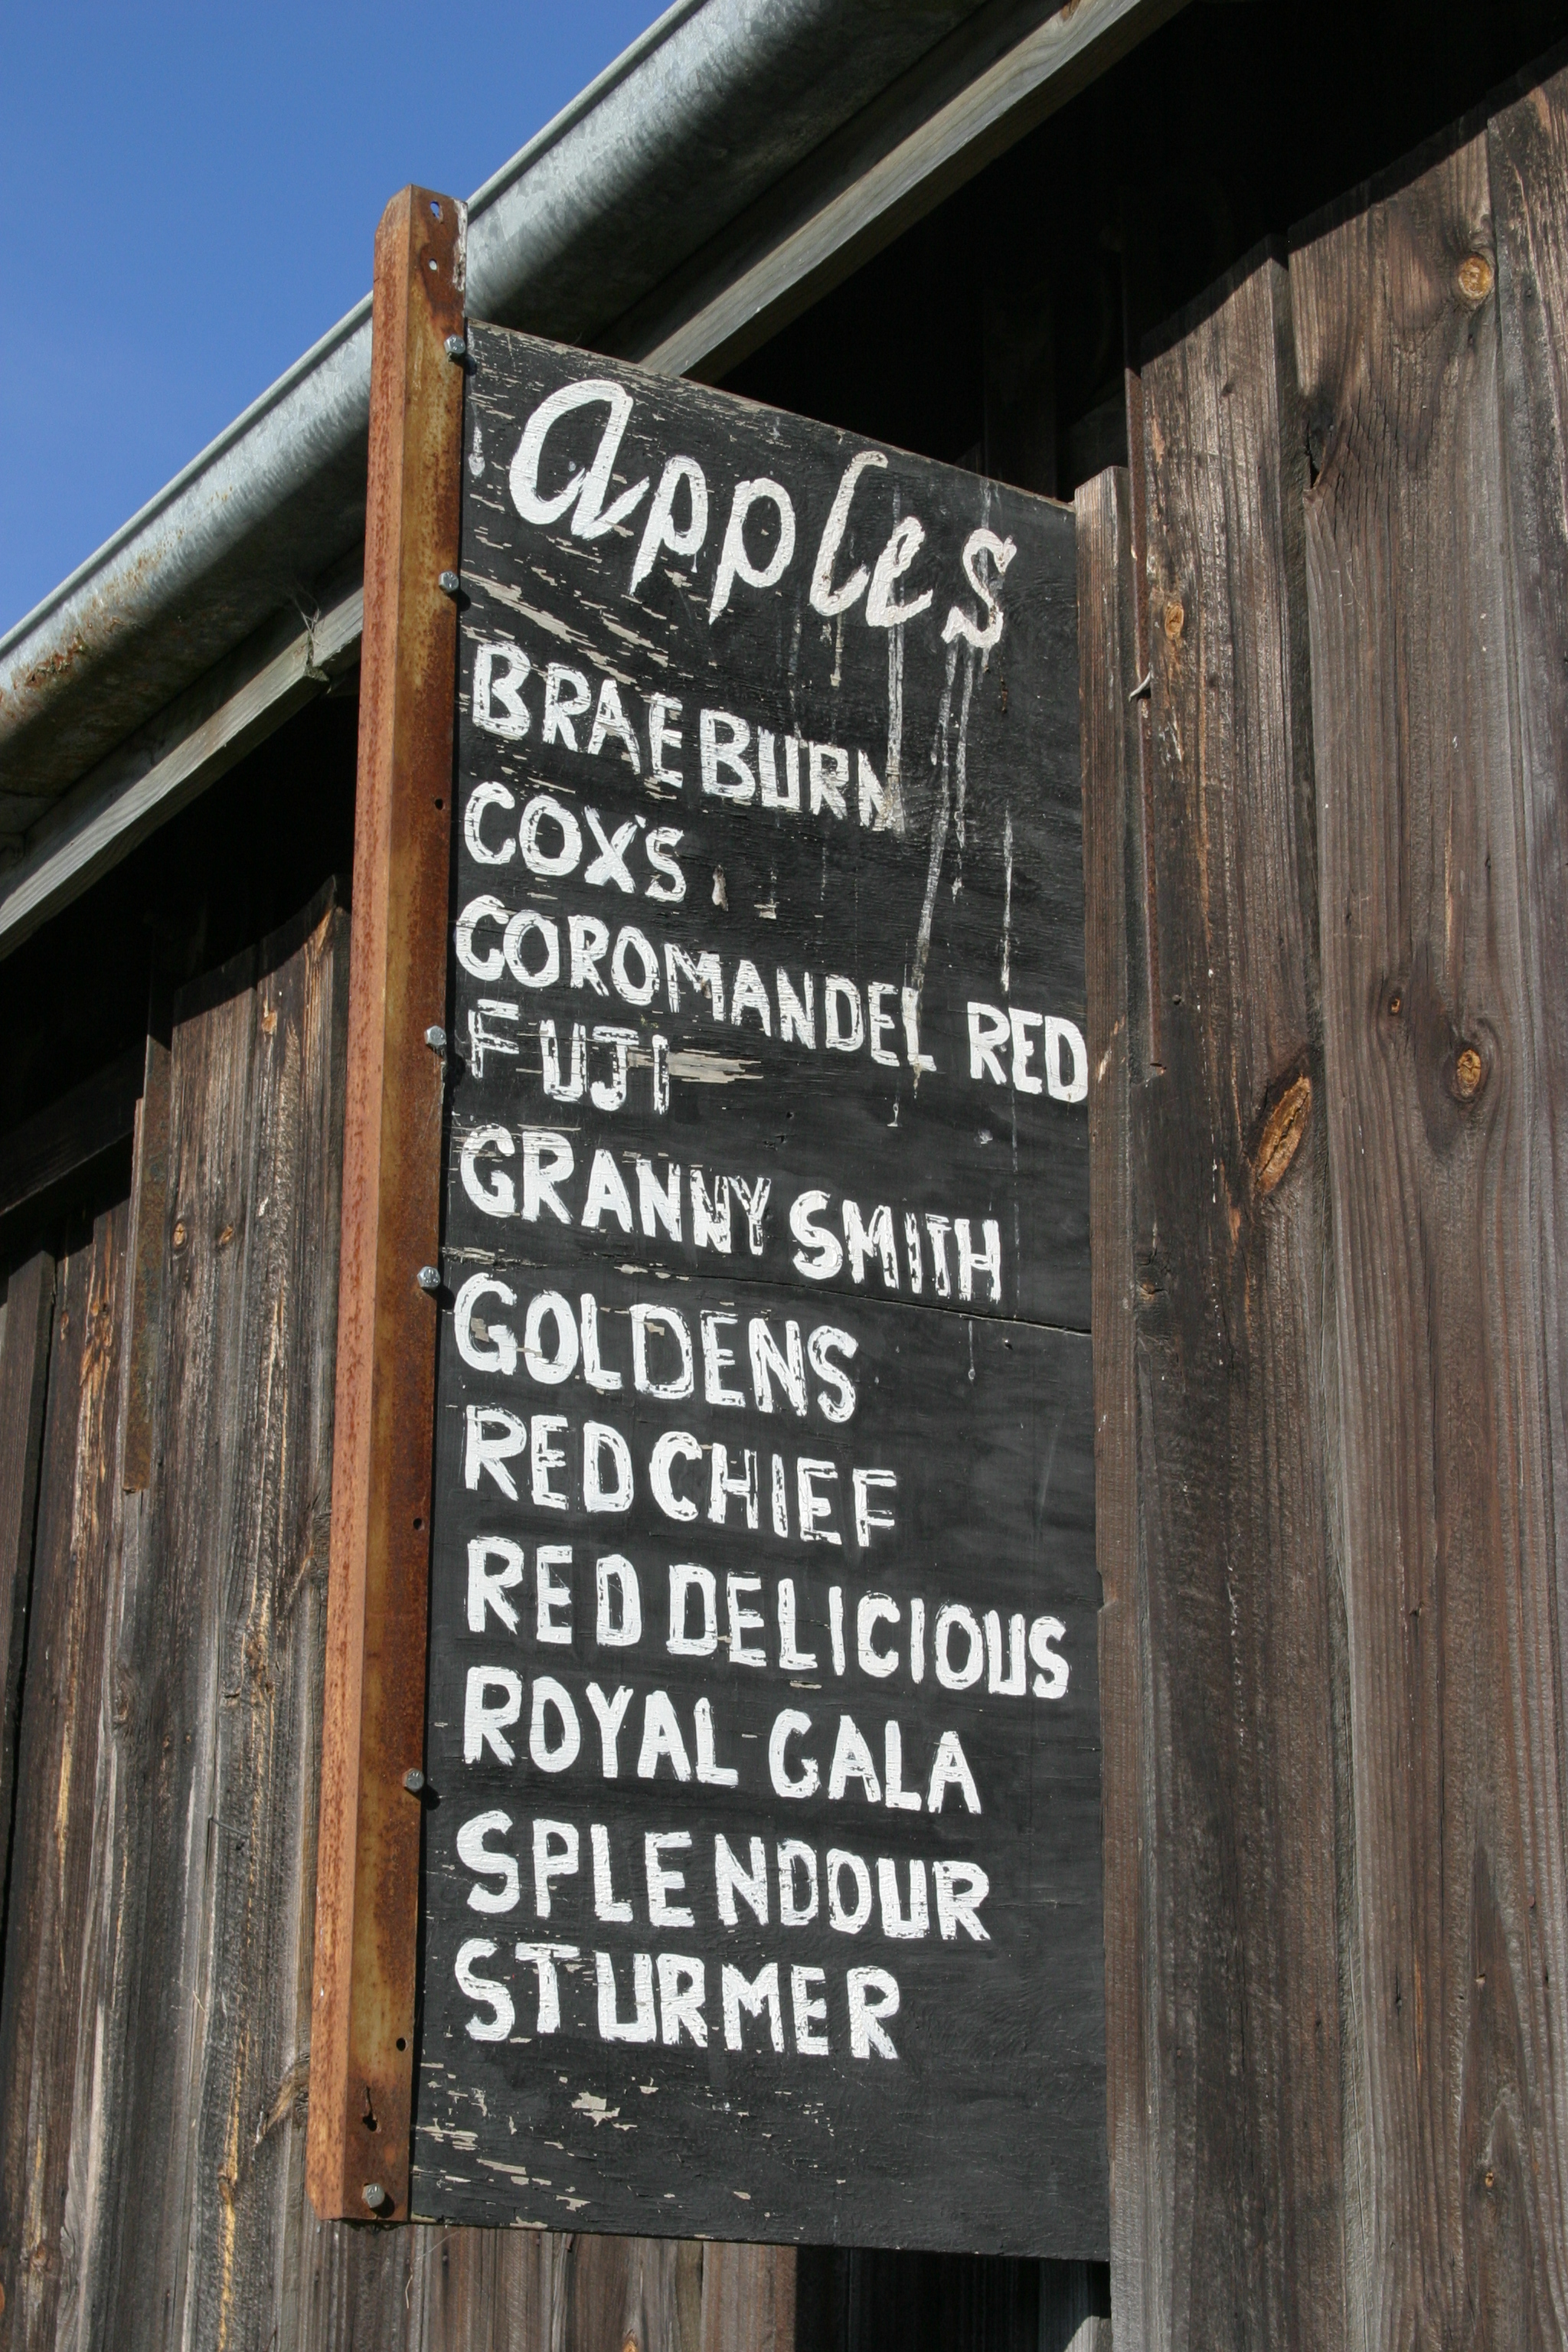 apples
BRAEBURN
COX'S
COROMANDEL RED
FUJI
GRANNY SMITH
GOLDENS
RED CHIEF
RED DELICIOUS
ROYAL GALA
SPLENDOUR
STURMER